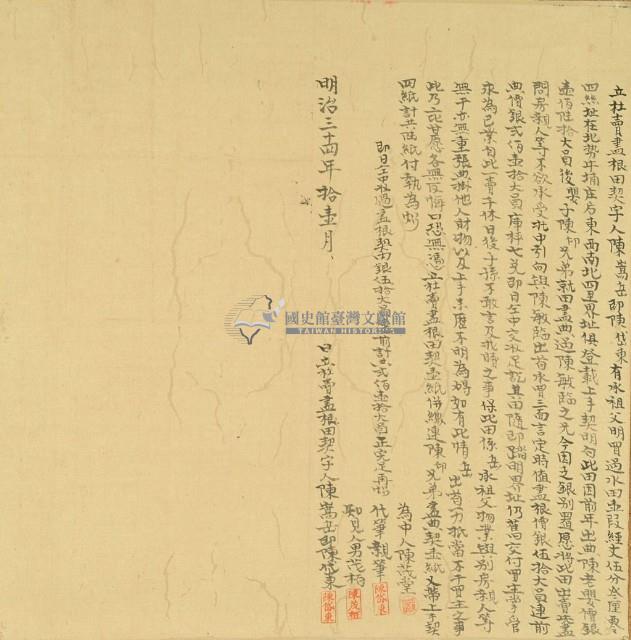 立杜賣盡根田契字人陳嵩岳即陳岱東有承祖父明買過水田壹段經丈伍分叁厘
四絲址在北勢牛埔庄后東西南北四至界址俱登載上手契明白此田因前年出典陳老嬰價銀
壹佰拾大員後嬰子陳兄弟就田盡典過陳敏臨之兄今因乏銀別置愿將此田出賣
問房親人等不欲承受外托中引向與陳敏臨出首承買三面言定時值盡根價銀伍拾大員連前
典價銀弍佰壹拾大員庫秤七兌即日仝中交收足訖其田隨即踏明界址仍舊向交付買主掌管
永為己業自此一賣千休日後子孫不敢言及找贖之事保此田係岳承祖父物業與別房親人等
無干亦無重張典掛他人財物以及上手來歷不明為碍如有此情岳出首一力抵當不干買主之事
此乃二比甘愿各無反悔口恐無憑立杜賣盡根田契壹紙併繳連陳兄弟盡典契壹紙又帶上手契
四紙計共紙付執為炤
即日仝中收過盡根契內銀伍拾大員前計共弍佰壹拾大員正完足再炤
為中人陳茂堂
代筆親筆
陳岱東
知見人男茂栢
陳茂栢
明治三十四年拾壹月
日立杜賣盡根田契字人陳嵩岳即陳岱東
陳岱東
國史館臺灣文獻館
TAIWAN HISTORICA